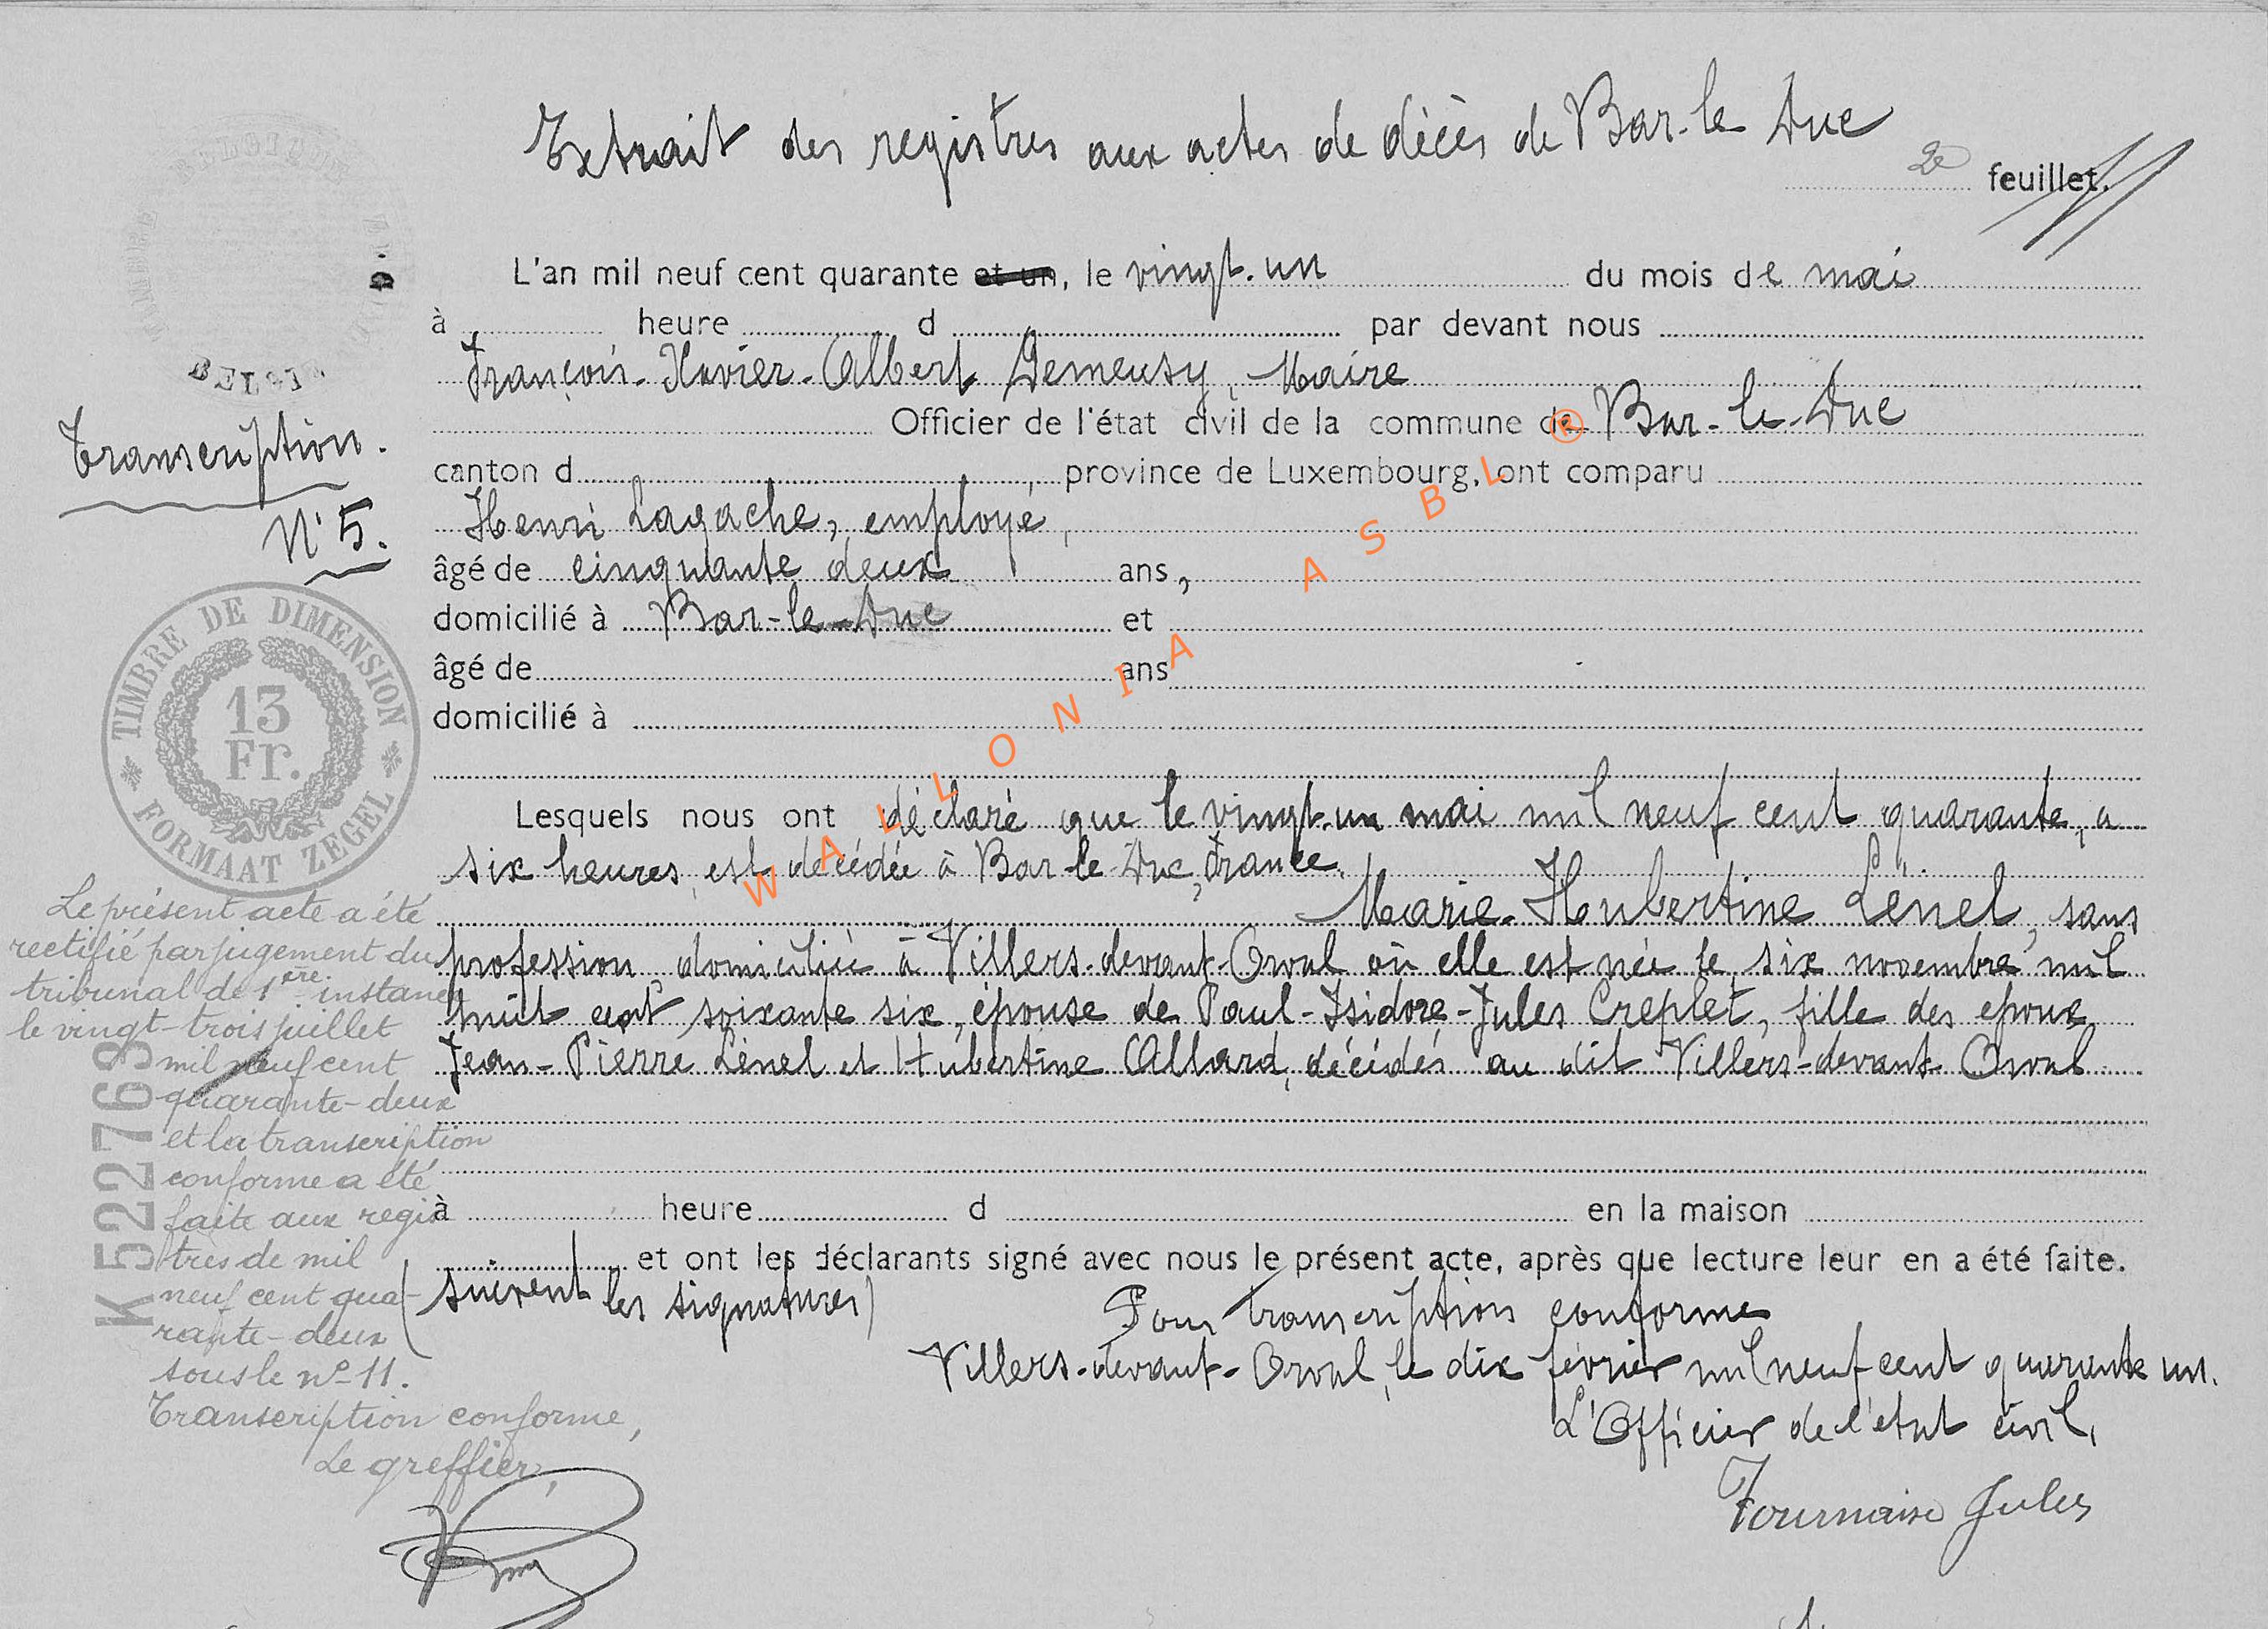 Extrait des registres aux actes de décès de Bar-le Duc
2e feuillet.
L'an mil neuf cent quarante et un, le vingt-un du mois de mai
à heure d par devant nous
François-Xavier-Albert Demeusy, Maire
Officier de l'état civil de la commune de Bar-le-Duc
canton d , province de Luxembourg, ont comparu
Henri Lagache, employé,
âgé de cinquante deux ans,
domicilié à Bar-le-Duc et
âgé de ans
domicilié à
Lesquels nous ont déclaré que le vingt-un mai mil neuf cent quarante, à
six heures, est décédée à Bar-le-Duc, France,
Marie-Hubertine Lénel, sans
profession domiciliée à Villers-devant-Orval où elle est née le six novembre mil
huit cent soixante six, épouse de Paul-Isidore-Jules Creplet, fille des époux
Jean-Pierre Lénel et Hubertine Allard, décédés au dit Villers-devant-Orval
à heure d en la maison
et ont les déclarants signé avec nous le présent acte, après que lecture leur en a été faite.
(suivent les signatures) Pour transcription conforme
Villers-devant-Orval, le dix février mil neuf cent quarante un.
L'Officier de l'état civil,
Fournaise Jules
BELGIQUE
BELGIË
Transcription.
N° 5.
TIMBRE DE DIMENSION
13
Fr.
FORMAAT ZEGEL
Le présent acte a été
rectifié par jugement du
tribunal de 1ère instance
le vingt-trois juillet
mil neuf cent
quarante-deux
et la transcription
conforme a été
faite aux regis
tres de mil
neuf cent qua-
rante-deux
sous le n° 11.
Transcription conforme,
Le greffier,
K522768
WALLONIA ASBL ®